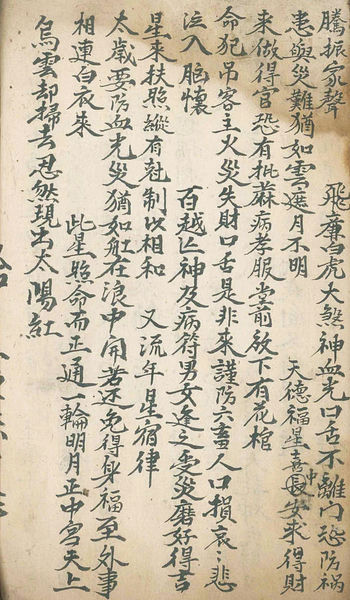 騰振家聲　飛廉白虎大煞神血光口舌不離門恐防禍
患與災難猶如雲遮月不明　天德福星喜長安求得財
來做得官恐有批麻病孝服堂前放下有花棺
命犯吊客主火災失財口舌是非來謹防六畜人口損哀〻悲
泣入胸懷　百越亡神及病符男女逢之受災磨好得吉
星來扶照縱有尅制以相和　又流年星宿律
太歲要防血光災猶如舡在浪中開若还免得身福至外事
相連白衣來　此星照命而正通一輪明月正中宮天上
烏雲却掃去忽然現出太陽紅